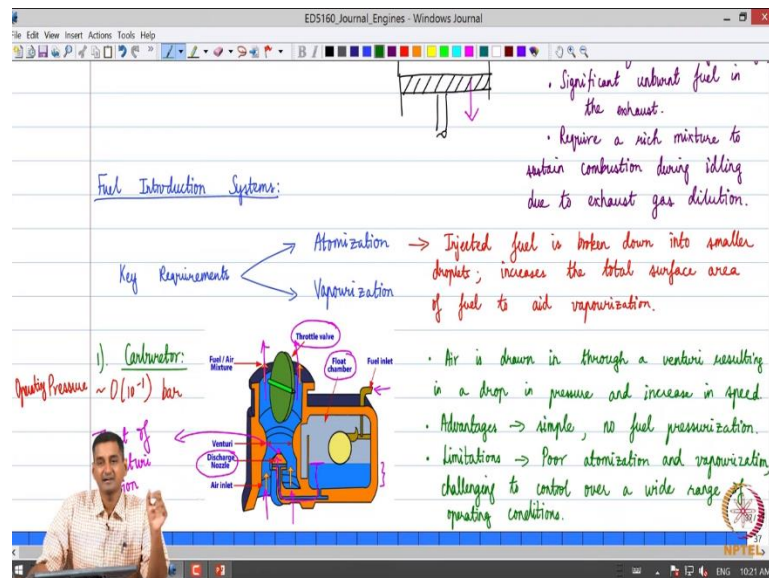 ED5160_Journal_Engines - Windows Journal
File Edit View Insert Actions Tools Help
• Significant unburnt fuel in
the exhaust.
• Require a rich mixture to
sustain combustion during idling
due to exhaust gas dilution.
Fuel Introduction Systems:
Key Requirements
Atomization → Injected fuel is broken down into smaller
droplets; increases the total surface area
of fuel to aid vapourization.
Vapourization
1). Carburetor:
Operating Pressure
~ O(10⁻¹) bar
Throttle valve
Fuel / Air
Mixture
Float
chamber
Fuel inlet
Venturi
Discharge
Nozzle
Air inlet
of
• Air is drawn in through a venturi resulting
in a drop in pressure and increase in speed.
• Advantages → simple, no fuel pressurization.
• Limitations → Poor atomization and vapourization,
challenging to control over a wide range of
operating conditions.
37
NPTEL
ENG 10:21 AM